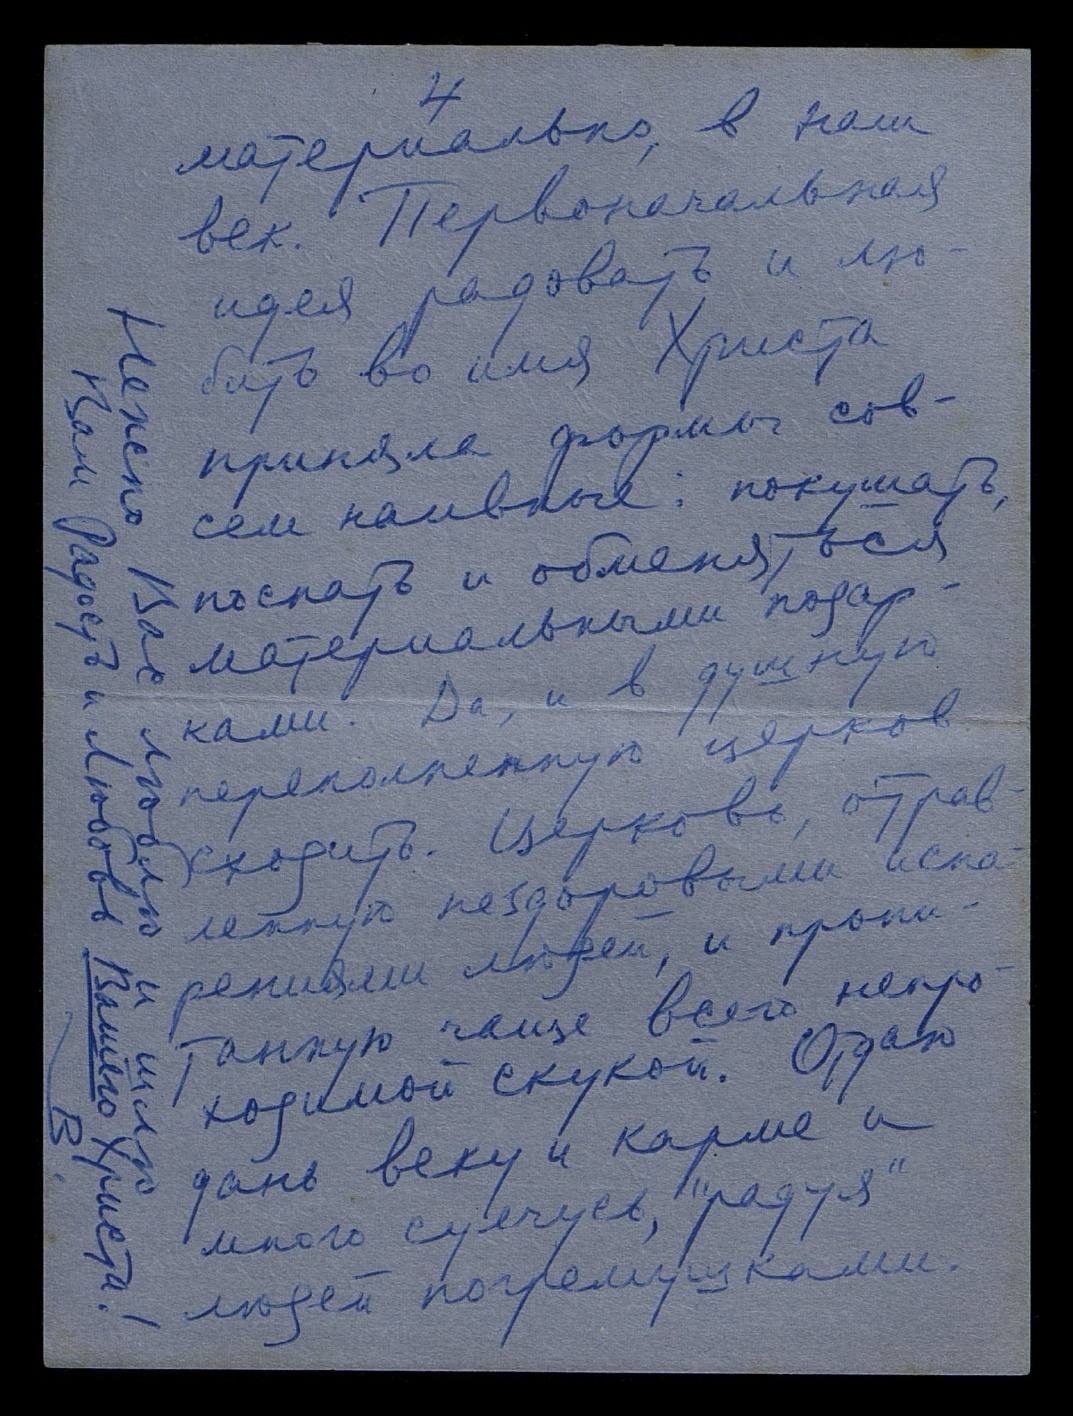 4
материально, в наш
век. Первоначальная
идея радовать и лю-
бить во имя Христа
приняла формы сов-
сем наивные: покушать,
поспать и обменяться
материальными подар-
ками. Да, и в душную
переполненную церков
сходить. Церковь, отрав-
ленную нездоровыми испа-
рениями людей, и пропи-
танную чаще всего непро-
ходимой скукой. Отдаю
дань веку и карме и
много суечусь, "радуя"
людей погремушками.
Нежно Вас люблю и шлю
Вам Радость и Любовь Вашего Христа!
В.